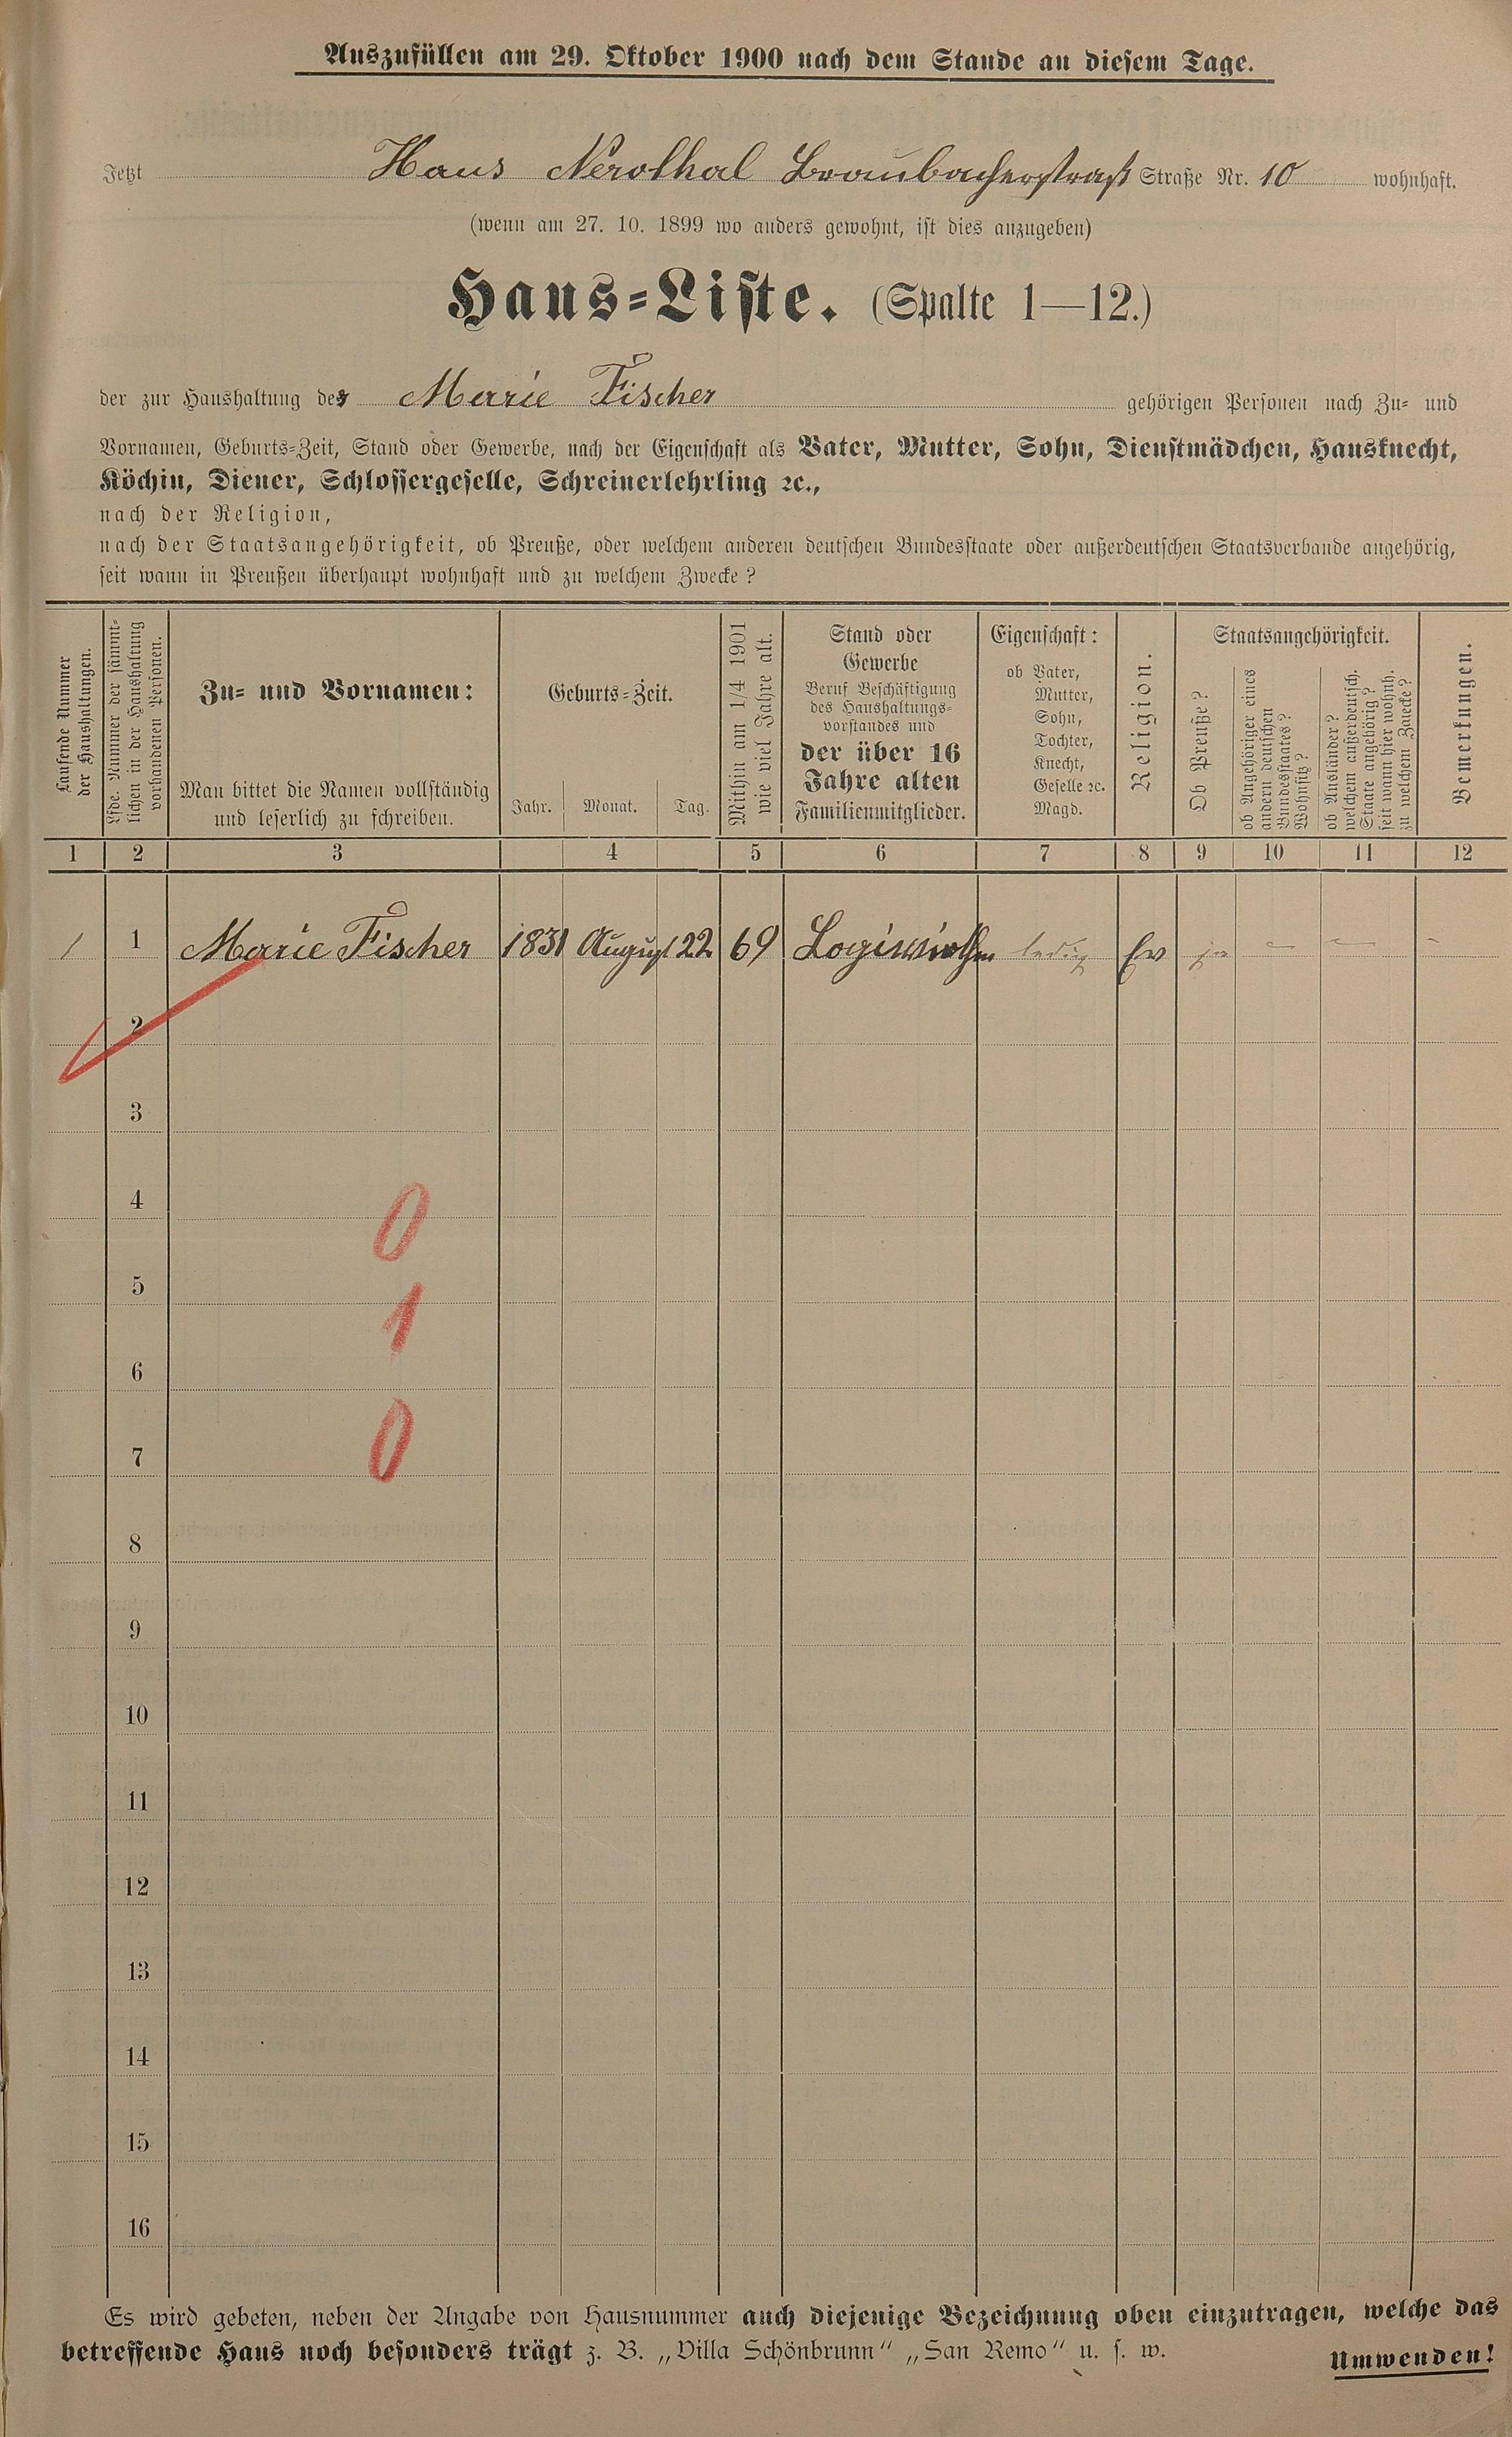 Auszufüllen am 29. Oktober 1900 nach dem Stande an diesem Tage.
Jetzt Haus Nerothal Braubacherstraß Straße Nr. 10 wohnhaft.
(wenn am 27. 10. 1899 wo anders gewohnt, ist dies anzugeben)
Haus-Liste. (Spalte 1—12.)
der zur Haushaltung der Marie Fischer gehörigen Personen nach Zu- und
Vornamen, Geburts-Zeit, Stand oder Gewerbe, nach der Eigenschaft als Vater, Mutter, Sohn, Dienstmädchen, Hausknecht,
Köchin, Diener, Schlossergeselle, Schreinerlehrling ꝛc.,
nach der Religion,
nach der Staatsangehörigkeit, ob Preuße, oder welchem anderen deutschen Bundesstaate oder außerdeutschen Staatsverbande angehörig,
seit wann in Preußen überhaupt wohnhaft und zu welchem Zwecke?
Laufende Nummer
der Haushaltungen.
Lfde. Nummer der sämmt-
lichen in der Haushaltung
vorhandenen Personen.
Zu- und Vornamen:
Man bittet die Namen vollständig
und leserlich zu schreiben.
Geburts-Zeit.
Jahr. Monat. Tag.
Mithin am 1/4 1901
wie viel Jahre alt.
Stand oder
Gewerbe
Beruf Beschäftigung
des Haushaltungs-
vorstandes und
der über 16
Jahre alten
Familienmitglieder.
Eigenschaft:
ob Vater,
Mutter,
Sohn,
Tochter,
Knecht,
Geselle ꝛc.
Magd.
Religion.
Staatsangehörigkeit.
Ob Preuße?
ob Angehöriger eines
andern deutschen
Bundesstaates?
Wohnsitz?
ob Ausländer?
welchem außerdeutsch.
Staate angehörig?
seit wann hier wohnh.
zu welchem Zwecke?
Bemerkungen.
1 2 3 4 5 6 7 8 9 10 11 12
1 1 Marie Fischer 1831 August 22 69 Logiswirthin ledig Ev ja — — -
2
3
4
0
5
1
6
0
7
8
9
10
11
12
13
14
15
16
Es wird gebeten, neben der Angabe von Hausnummer auch diejenige Bezeichnung oben einzutragen, welche das
betreffende Haus noch besonders trägt z. B. „Villa Schönbrunn" „San Remo" u. s. w.
Umwenden!